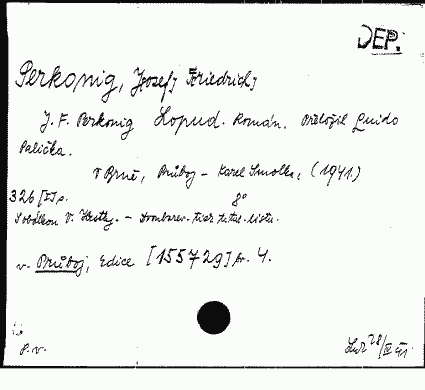 DEP.
Perkonig, J[osef] Friedrich
J. F. Perkonig Lopud. Román. Přeložil Quido
Palička.
V Brně, Průboj – Karel Smolka, (1941)
326 [II] s. 8°
S obálkou V. – titul. listu.
v. Průboj, Edice [155729] sv. 4.